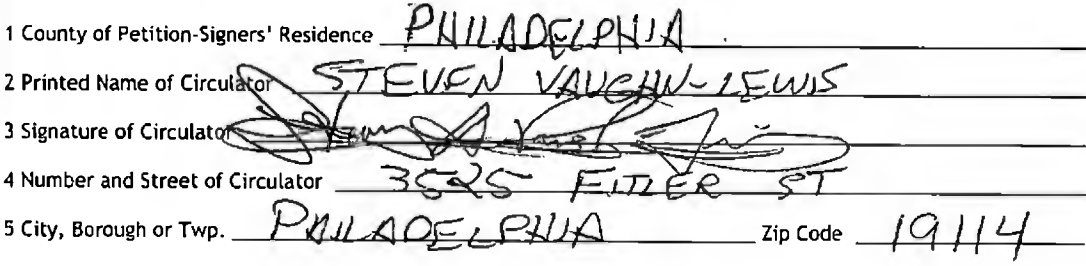 1 County of Petition-Signers' Residence PHILADELPHIA
2 Printed Name of Circulator STEVEN VAUGHN-LEWIS
3 Signature of Circulator
4 Number and Street of Circulator 3525 FITLER ST
5 City, Borough or Twp. PHILADELPHIA Zip Code 19114